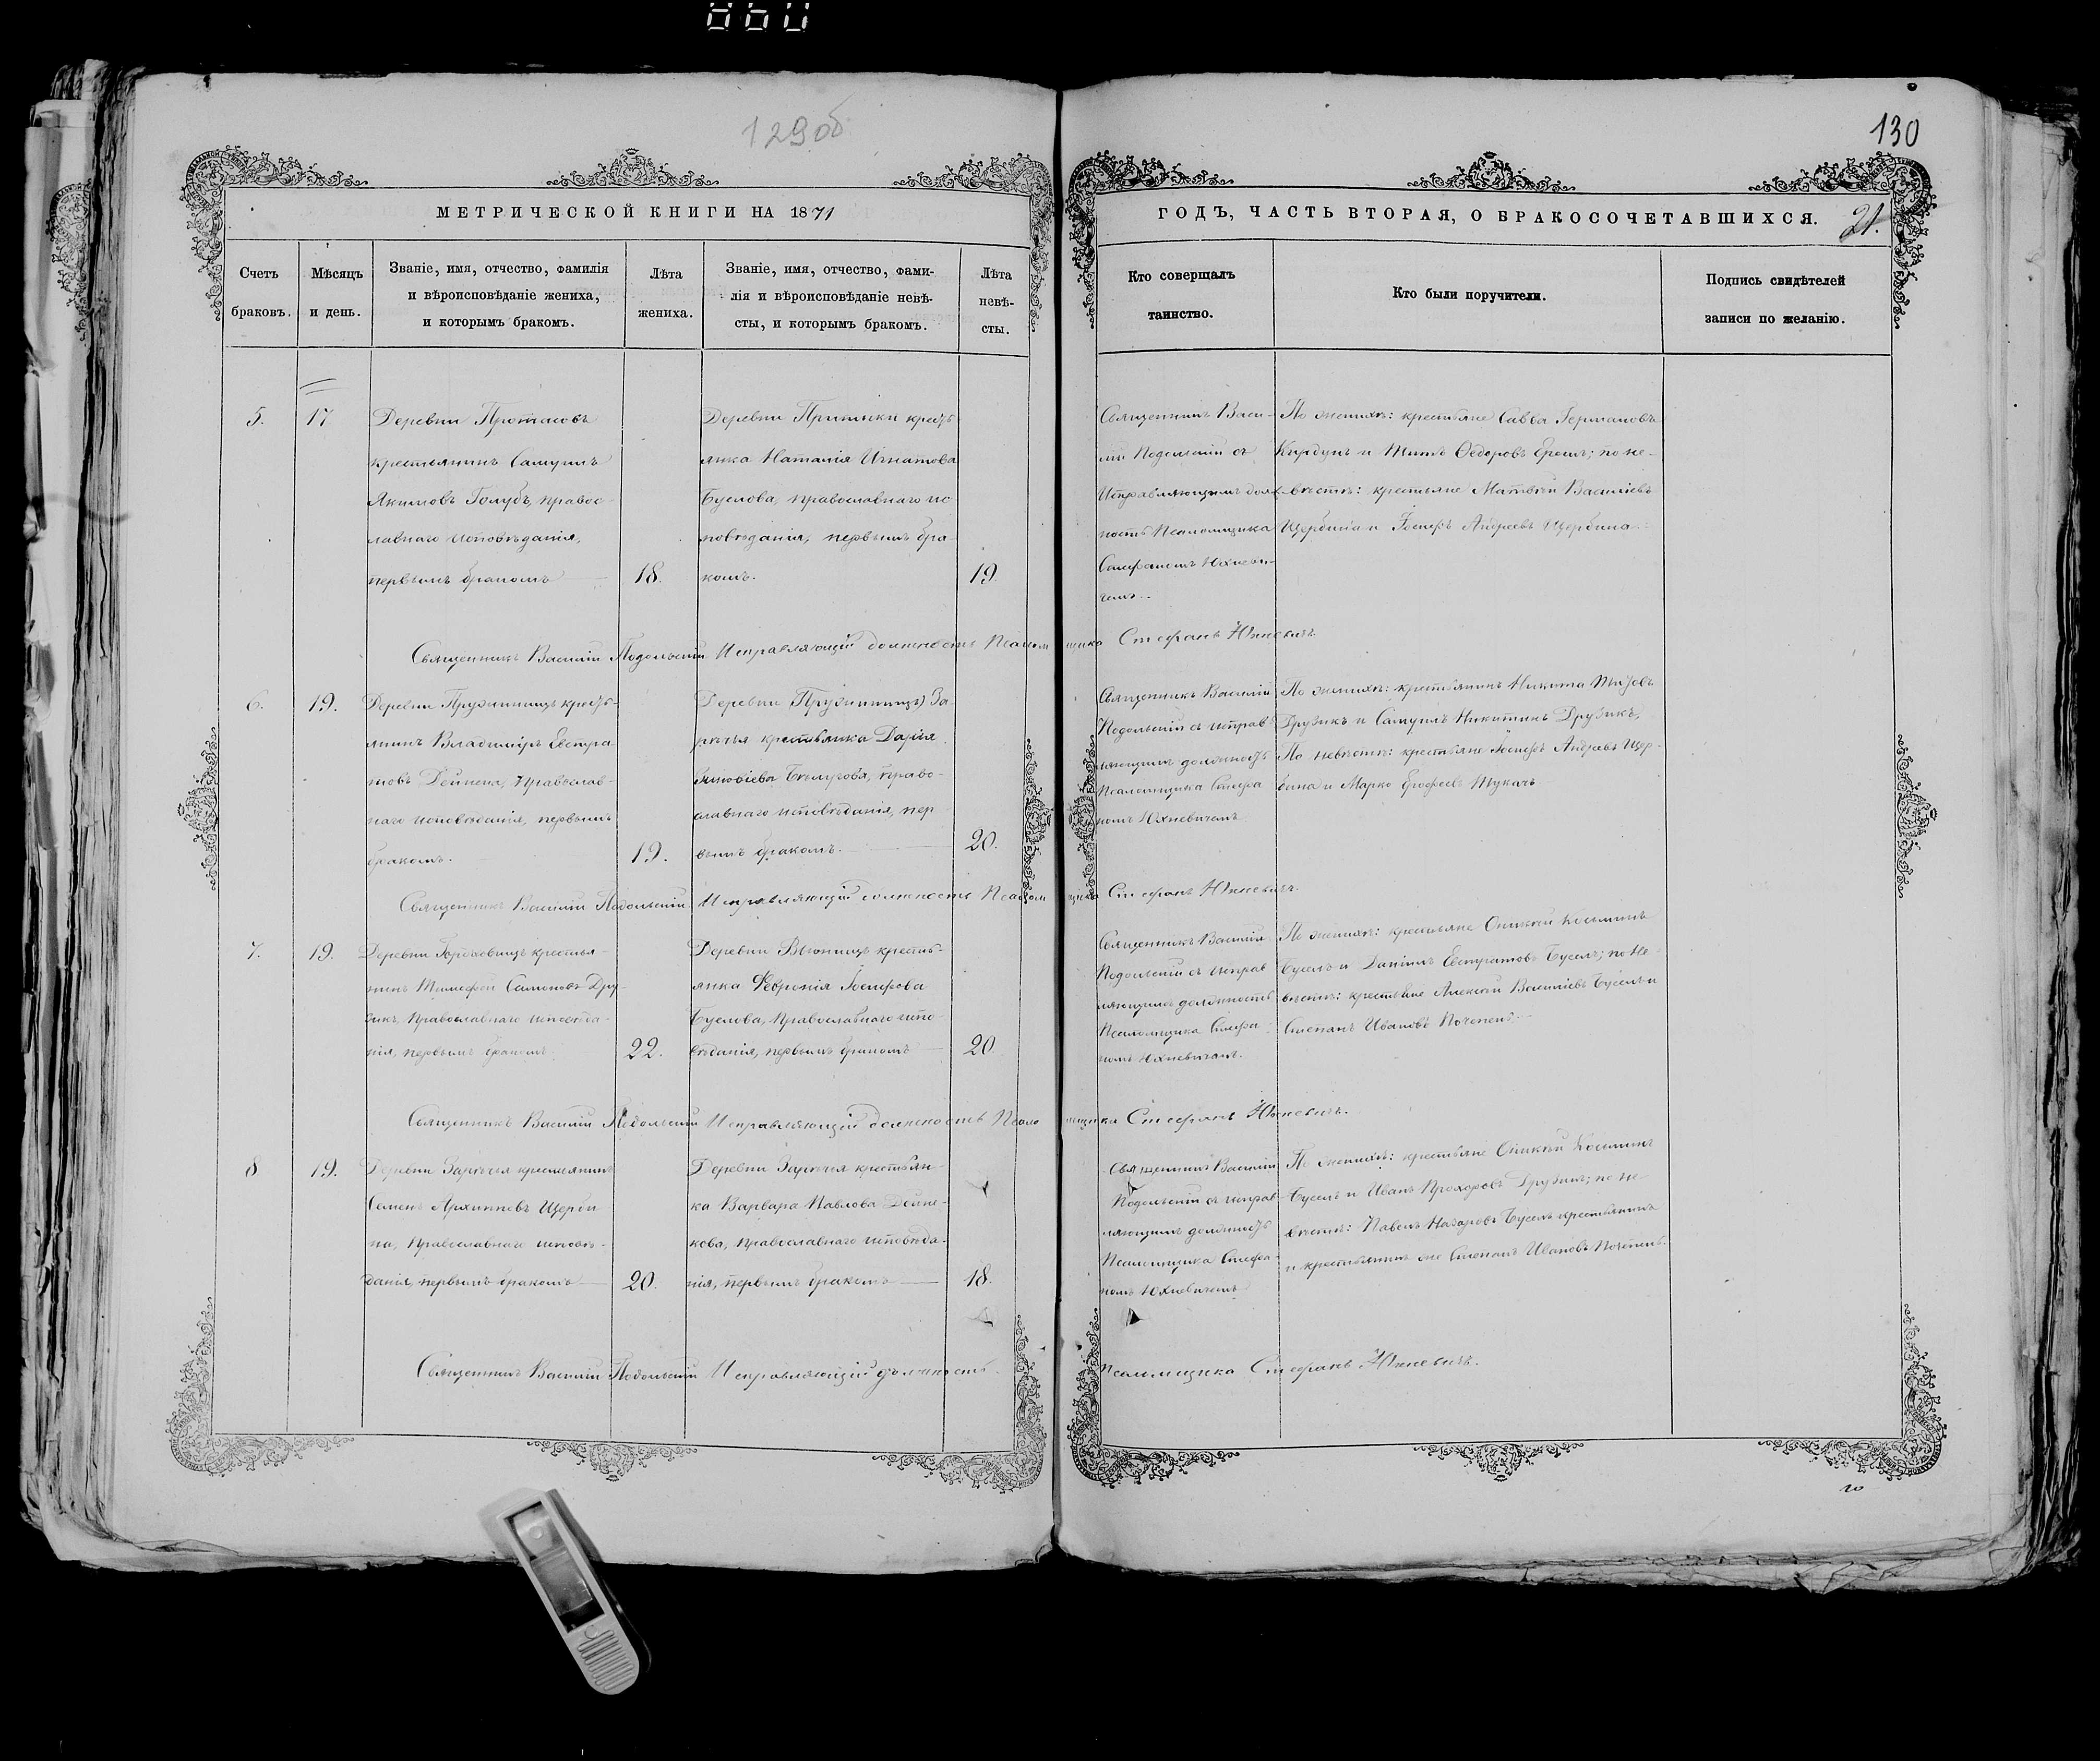 129об
130
МЕТРИЧЕСКОЙ КНИГИ НА 1871
ГОДЪ, ЧАСТЬ ВТОРАЯ, О БРАКОСОЧЕТАВШИХСЯ.
21.
Счетъ
браковъ.
Мѣсяцъ
и день.
Званіе, имя, отчество, фамилія
и вѣроисповѣданіе жениха,
и которымъ бракомъ.
Лѣта
жениха.
Званіе, имя, отчество, фами-
лія и вѣроисповѣданіе невѣ-
сты, и которымъ бракомъ.
Лѣта
невѣ-
сты.
Кто совершалъ
таинство.
Кто были поручители.
Подпись свидѣтелей
записи по желанію.
5.
17
Деревни Протасовъ
крестьянинъ Самуилъ
Якимовъ Голубъ, правос-
лавнаго исповѣданія,
первымъ бракомъ
18.
Деревни Притыки кресть
янка Наталія Игнатова
Буслова, православнаго ис
повѣданія, первымъ бра-
комъ.
19.
Священникъ Васи-
лій Подольскій съ
Исправляющимъ долж-
ность Псаломщика
Стефаномъ Юхневи-
чемъ.
По женихѣ: крестьяне Савва Германовъ
и Титъ Ѳедоровъ по не-
вѣстѣ: крестьяне Матвѣй Василіевъ
Щербина и Іосифъ Андреевъ Щербина
Священникъ Василій Подольскій Исправляющій должность Псалом щика Стефанъ Юхневичъ.
6.
19.
Деревни Прузиницъ кресть-
янинъ Владиміръ Евстра
товъ Дейнека, Православ-
наго исповѣданія, первымъ
бракомъ.
19.
Деревни (Прузиницъ) За-
рѣчья крестьянка Дарія
православнаго исповѣданія, пер
вымъ бракомъ.
20.
Священникъ Василій
Подольскій съ исправ
ляющимъ должность
Псаломщика Стефа
номъ Юхневичемъ
По женихѣ: крестьянинъ Никита
Друзикъ и Самуилъ Никитинъ Друзикъ,
По невѣстѣ: крестьяне Іосифъ Андреевъ Щер-
бина и Марко Ерофеевъ Тукачъ
Священникъ Василій Подольскій Исправляющій должность Псалом щика Стефанъ Юхневичъ.
7.
19.
Деревни Гороховищъ крестья-
нинъ Тимофей Самоновъ Дру-
зикъ, Православнаго исповѣда-
нія, первымъ бракомъ.
22.
Деревни Вьюнищъ кресть-
янка Февронія Іосифова
Буслова, Православнаго испо-
вѣданія, первымъ бракомъ
20.
Священникъ Василій
Подольскій съ исправ
ляющимъ должность
Псаломщика Стефа
номъ Юхневичемъ.
По женихѣ: крестьяне Оникей Косьминъ
Буселъ и Даніилъ Евстратовъ Буселъ; по не-
вѣстѣ: крестьяне Алексѣй Василіевъ Буселъ и
Степанъ Ивановъ Почепенъ.
Священникъ Василій Подольскій Исправляющій должность Псало мщика Стефанъ Юхневичъ.
8
19.
Деревни Зарѣчья крестьянинъ
Семенъ Архиповъ Щерби
на, Православнаго исповѣ-
данія, первымъ бракомъ
20.
Деревни Зарѣчья крестьян-
ка Варвара Павлова Дейне-
кова, Православнаго исповѣда-
нія, первымъ бракомъ
18.
Священникъ Василій
Подольскій съ исправ
ляющимъ должность
Псаломщика Стефа-
номъ Юхневичемъ
По женихѣ: крестьяне Оникей Косьминъ
Буселъ и Иванъ Прохоровъ Друзикъ; по не-
вѣстѣ: Павелъ Назаровъ Буселъ крестьянинъ
и крестьянинъ же Степанъ Ивановъ Почепенъ.
Священникъ Василій Подольскій Исправляющій должность Псаломщика Стефанъ Юхневичъ.